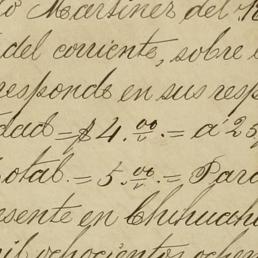 o Martinez del R
del corriente, sobre
responde en sus resp
dad = $4.00 = a 25
otal. = 5.00 = Para
esente en Chihuahu
mil ochocientos ochen